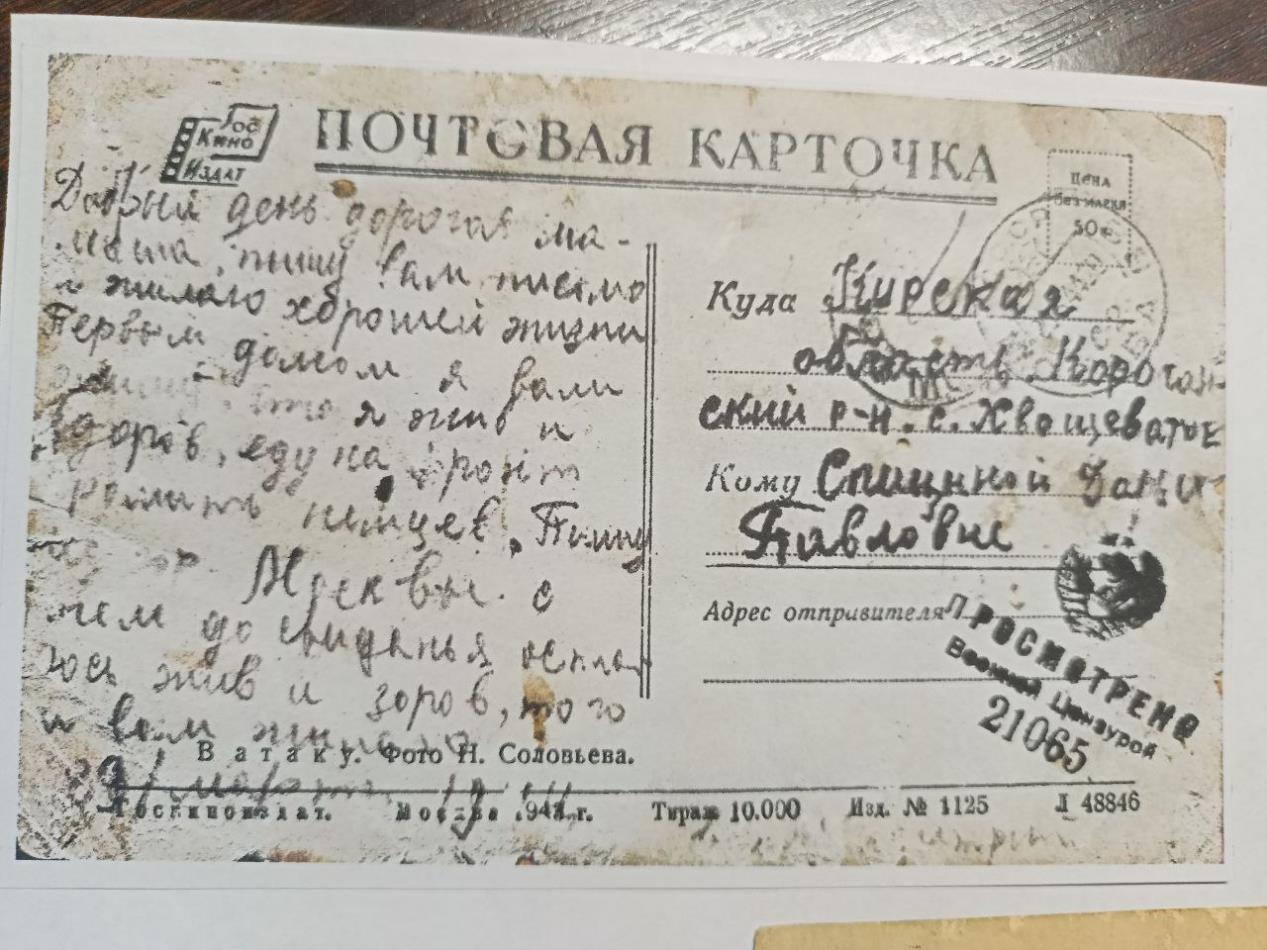 Гос
Кино
Издат
ПОЧТОВАЯ КАРТОЧКА
цена
без марки
50 к
Добрый день дорогая ма-
маша, пишу вам письмо
и жилаю хорошей жизни
Первым долгом я вам
что я жив и
здоров, еду на фронт
ромить немцев, Пишу
Москвы. с
чем до свиданья остаю
юсь жив и зоров, того
и вам
29/ марта
Куда Курская
область Корочан-
ский р-н. с. Хвощеватое
Кому Спициной
Павловне
Адрес отправителя
ПРОСМОТРЕНО
Военной Цензурой
21065
В атаку. Фото Н. Соловьева.
Госкиноиздат. Москва г. Тираж 10.000 Изд. № 1125 Л 48846